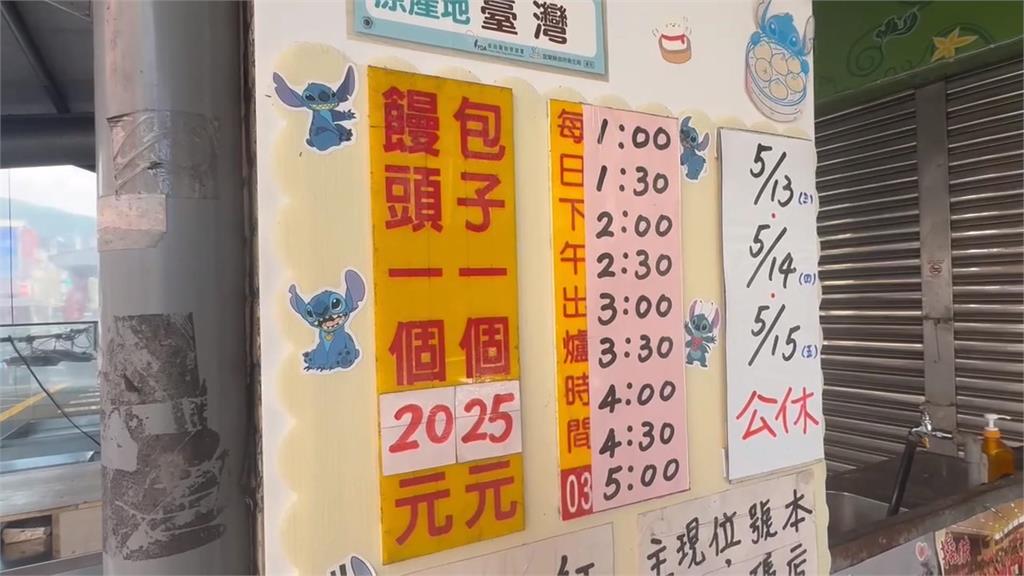 原產地 臺灣
包子一個25元
饅頭一個20元
每日下午出爐時間
03
1:00
1:30
2:00
2:30
3:00
3:30
4:00
4:30
5:00
5/13(三)
5/14(四)
5/15(五)
公休
本店
號碼
位
現
主